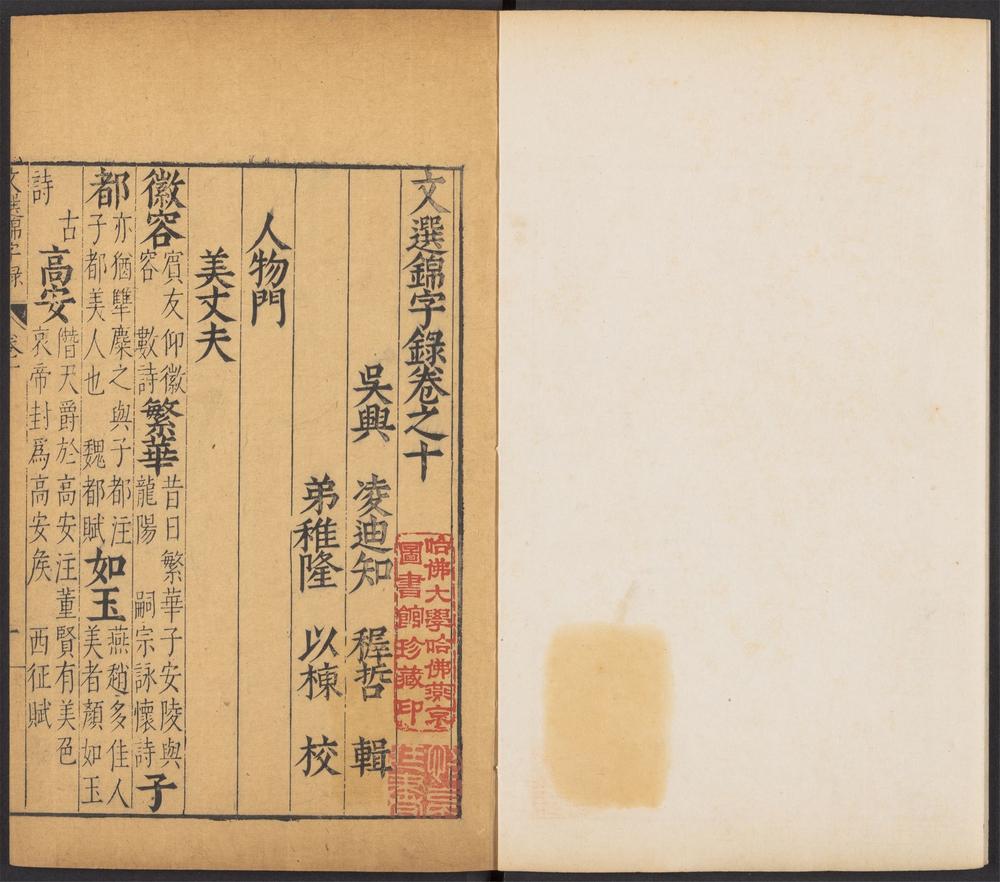 文選錦字錄卷之十
吳興 凌迪知 穉哲 輯
弟稚隆 以棟 校
人物門
美丈夫
徽容 賓友仰徽容 數詩 繁華 昔日繁華子安陵與龍陽 嗣宗詠懷詩 子
都 亦猶犨麋之與子都注子都美人也 魏都賦 如玉 燕趙多佳人美者顏如玉
古詩 高安 僭天爵於高安注董賢有美色哀帝封爲高安矦 西征賦
文選錦字錄 卷十 一
哈佛大學哈佛燕京
圖書館珍藏印